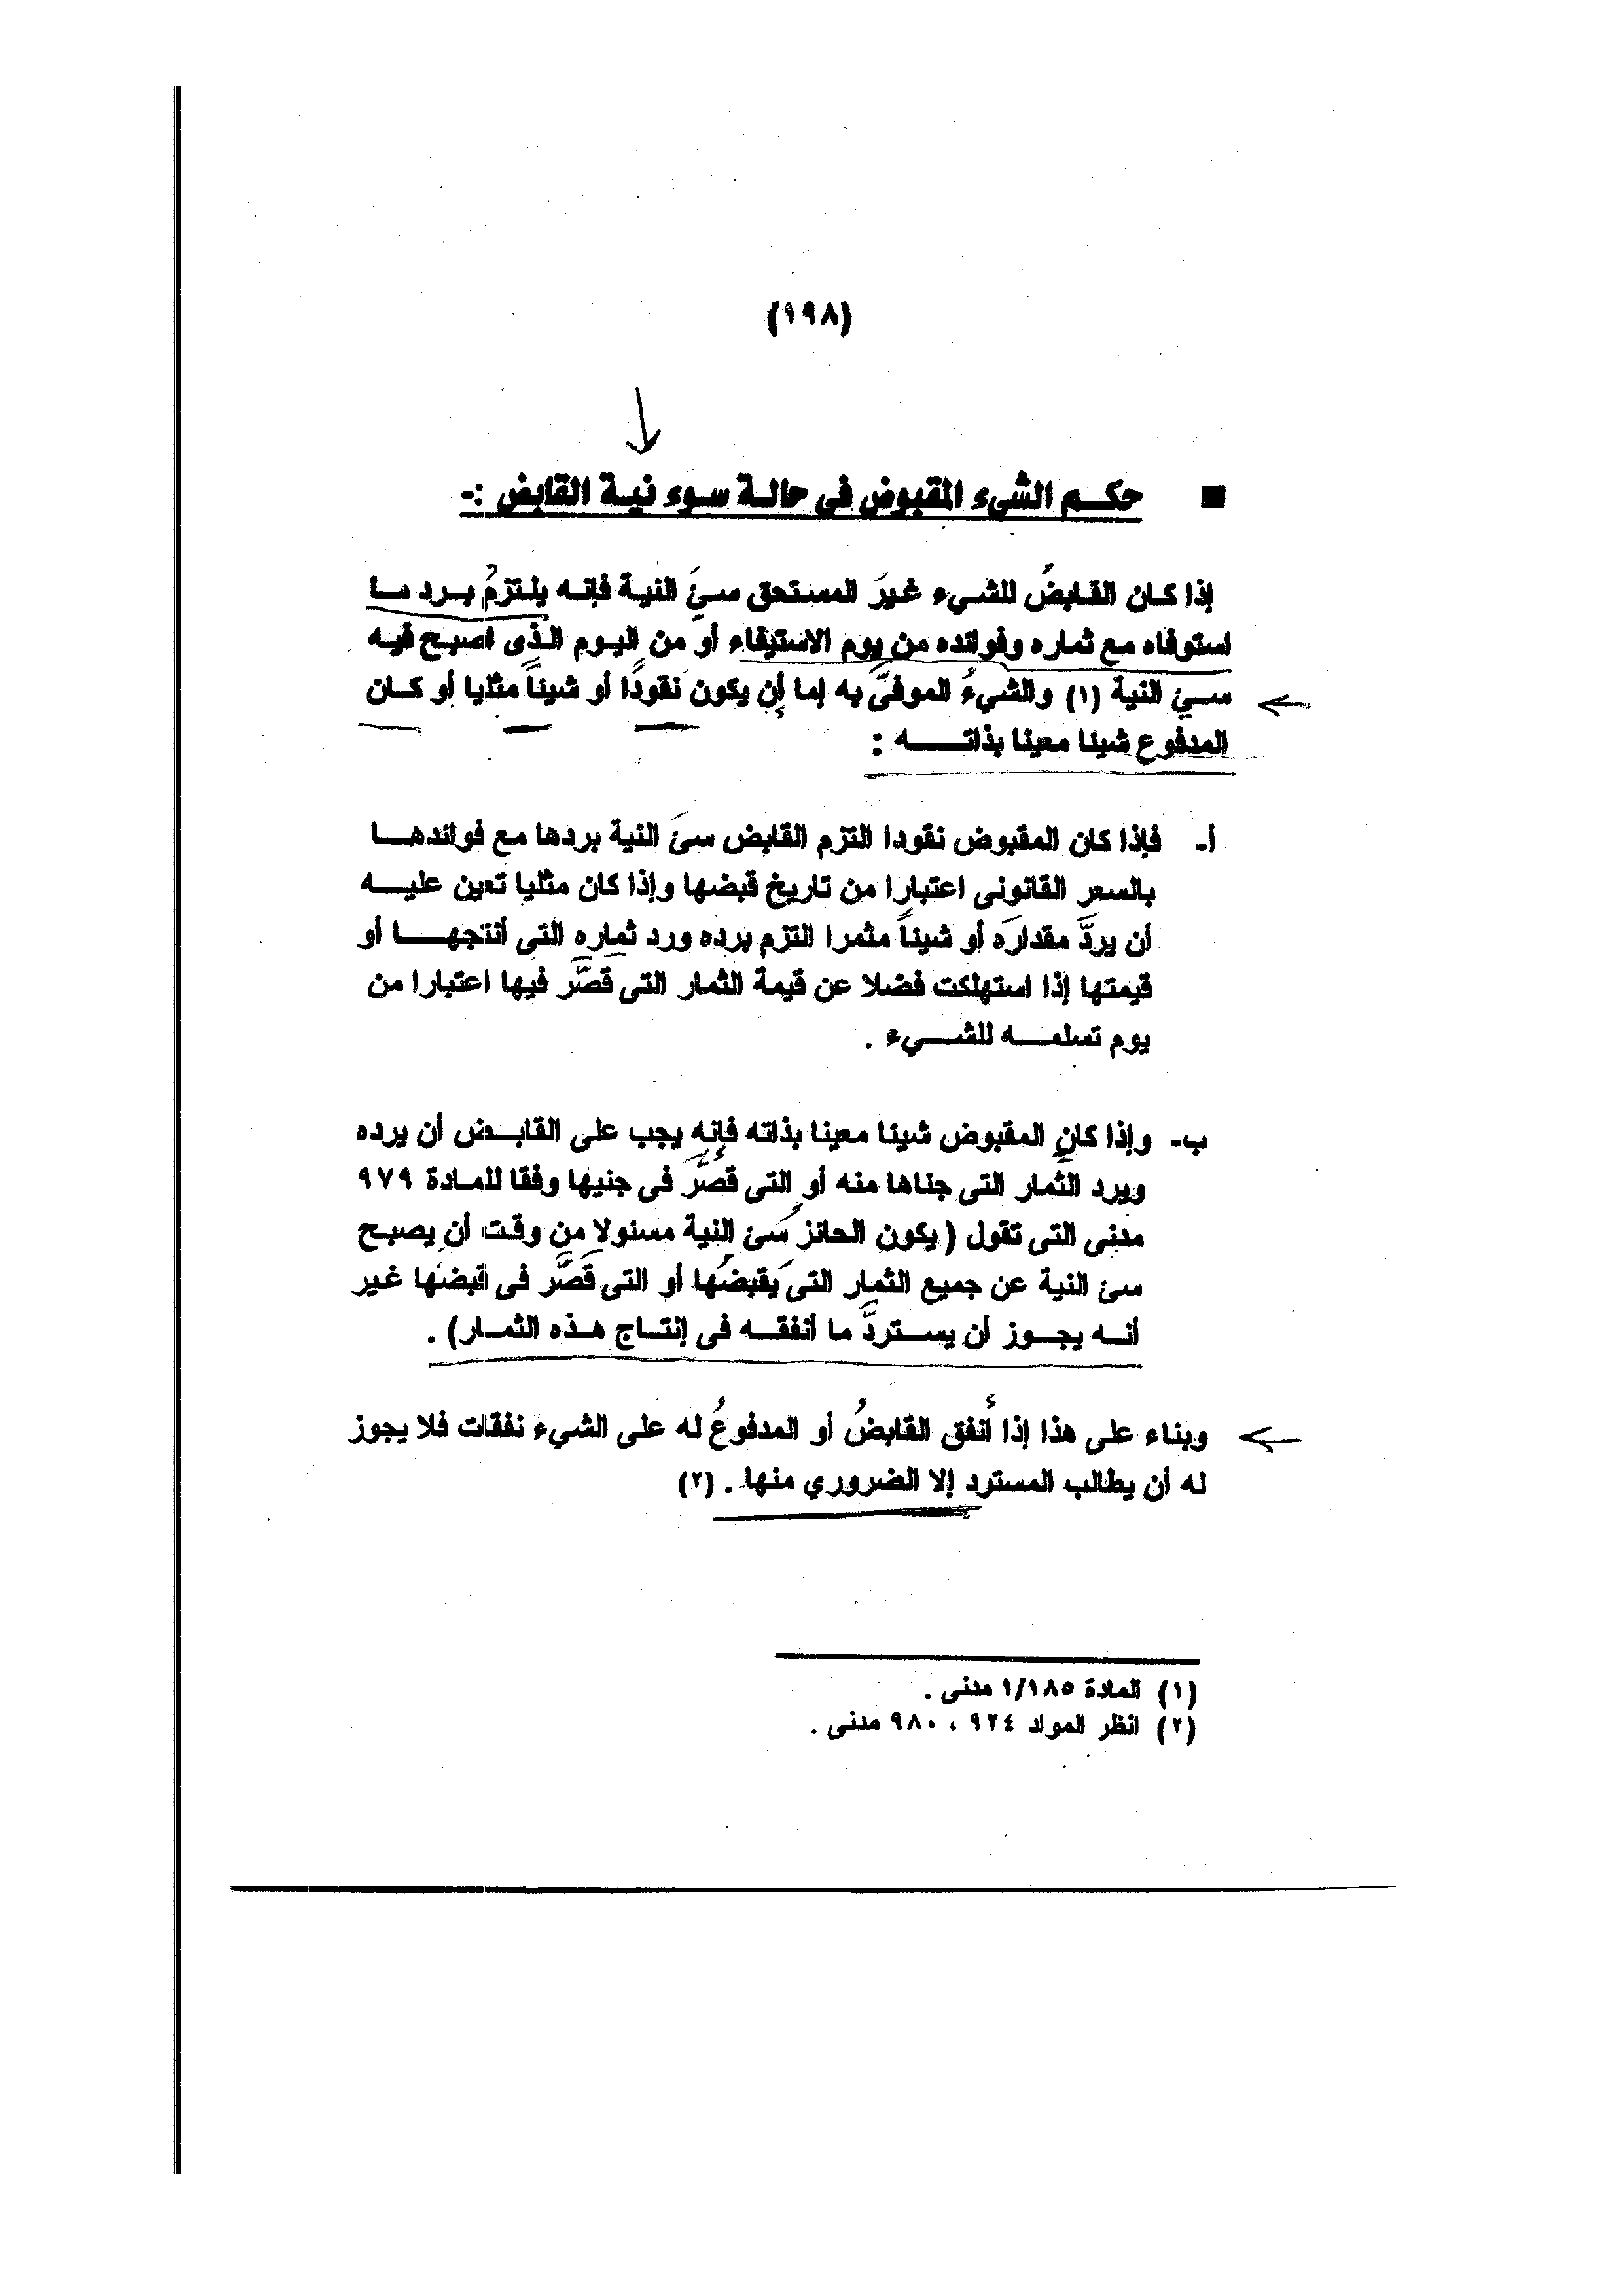 (١٩٨)
■ حكم الشيء المقبوض فى حالة سوء نية القابض :-
إذا كان القابضُ للشيء غيرَ المستحق سئَ النية فإنه يلتزمُ برد ما
استوفاه مع ثماره وفوائده من يوم الاستيفاء أو من اليوم الذى اصبح فيه
سئ النية (١) والشيءُ الموفىَّ به إما أن يكون نقودًا أو شيئاً مثليا أو كان
المدفوع شيئا معينا بذاته :
أ- فإذا كان المقبوض نقودا التزم القابض سئَ النية بردها مع فوائدها
بالسعر القانونى اعتبارا من تاريخ قبضها وإذا كان مثليا تعين عليه
أن يردَّ مقدارَه أو شيئاً مثمرا التزم برده ورد ثماره التى أنتجها أو
قيمتها إذا استهلكت فضلا عن قيمة الثمار التى قصَّر فيها اعتبارا من
يوم تسلمه للشيء .
ب- وإذا كان المقبوض شيئا معينا بذاته فإنه يجب على القابض أن يرده
ويرد الثمار التى جناها منه أو التى قصَّر فى جنيها وفقا للمادة ٩٧٩
مدنى التى تقول ( يكون الحائز سئ النية مسئولا من وقت أن يصبح
سئ النية عن جميع الثمار التى يقبضُها أو التى قَصَّر فى قبضها غير
أنه يجوز أن يستردَّ ما أنفقه فى إنتاج هذه الثمار) .
وبناء على هذا إذا أنفق القابضُ أو المدفوعُ له على الشيء نفقات فلا يجوز
له أن يطالب المسترد إلا الضروري منها . (٢)
(١) المادة ١/١٨٥ مدنى .
(٢) انظر المواد ٩٢٤ ، ٩٨٠ مدنى .